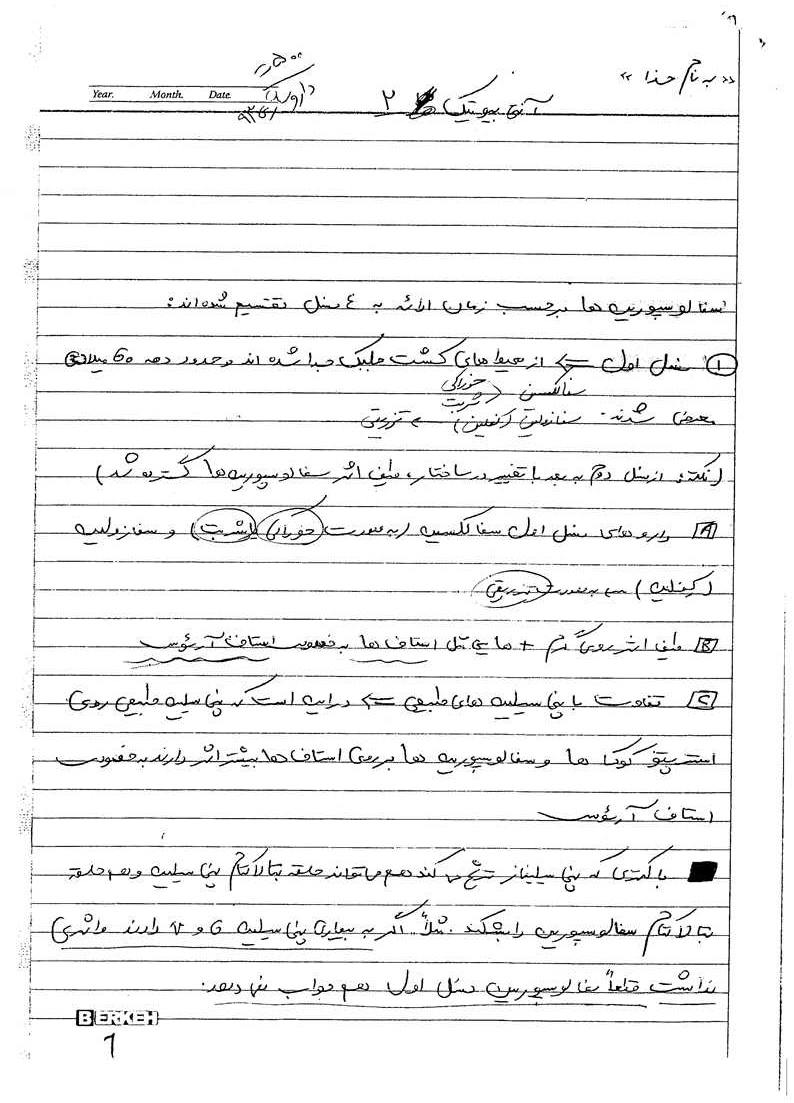 «به نام خدا»
Year. Month. Date
آنتی بیوتیک ها ۲
سفالوسپورین ها برحسب زمان ارائه به ٤ نسل تقسیم شده اند:
① نسل اول ⇐ از محیط های کشت جدا شده اند و حدود دهه 60 میلادی
سفالکسین (خوراکی شربت
معرفی شدند. سفازولین (کفلین) ← تزریقی
(نکته: از نسل دوم به بعد با تغییر در ساختار، طیف اثر سفالوسپورین ها گسترده شد)
A داروهای نسل اول سفالکسین (به صورت خوراکی یا شربت) و سفازولین
(کفلین) → به صورت تزریقی
B طیف اثر روی گرم + ها مثل استاف ها به خصوص استاف آرئوس
C تفاوت با پنی سیلین های طبیعی ⇐ در این است که پنی سیلین طبیعی روی
استرپتوکوک ها و سفالوسپورین ها بر روی استاف ها بیشتر اثر دارند به خصوص
استاف آرئوس
باکتری که پنی سیلیناز ترشح می کند هم می تواند حلقه بتالاکتام پنی سیلین و هم حلقه
بتالاکتام سفالوسپورین را بشکند. مثلاً اگر به بیماری پنی سیلین G و V دادند و اثری
نداشت قطعاً سفالوسپورین نسل اول هم جواب نمی دهد.
BERKEH
1